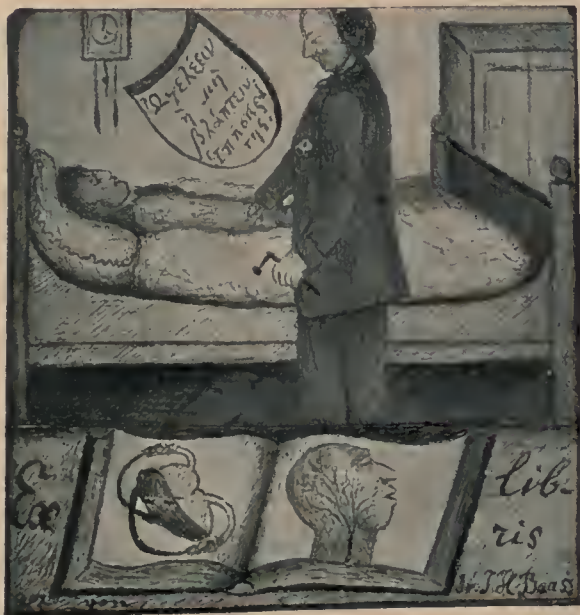 Ὠφελέειν
ἢ μὴ
βλάπτειν.
Ἱπποκρά
της.
Ex
lib-
ris
Dr. J. H. Baas
von